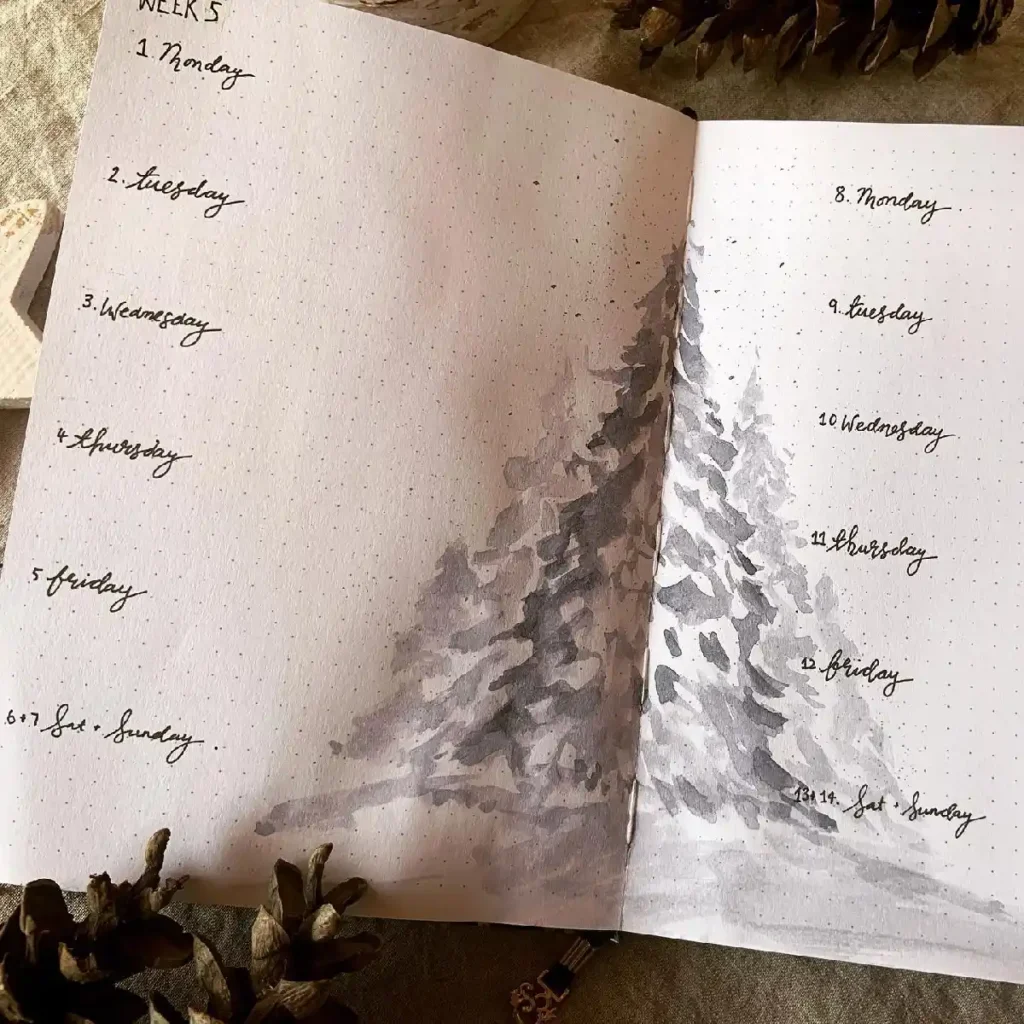 WEEK 5
1. Monday
2. tuesday
3. Wednesday
4 thursday
5 friday
6+7 Sat + Sunday.
8. Monday.
9. tuesday
10. Wednesday
11 thursday
12 friday
13+14. Sat + Sunday